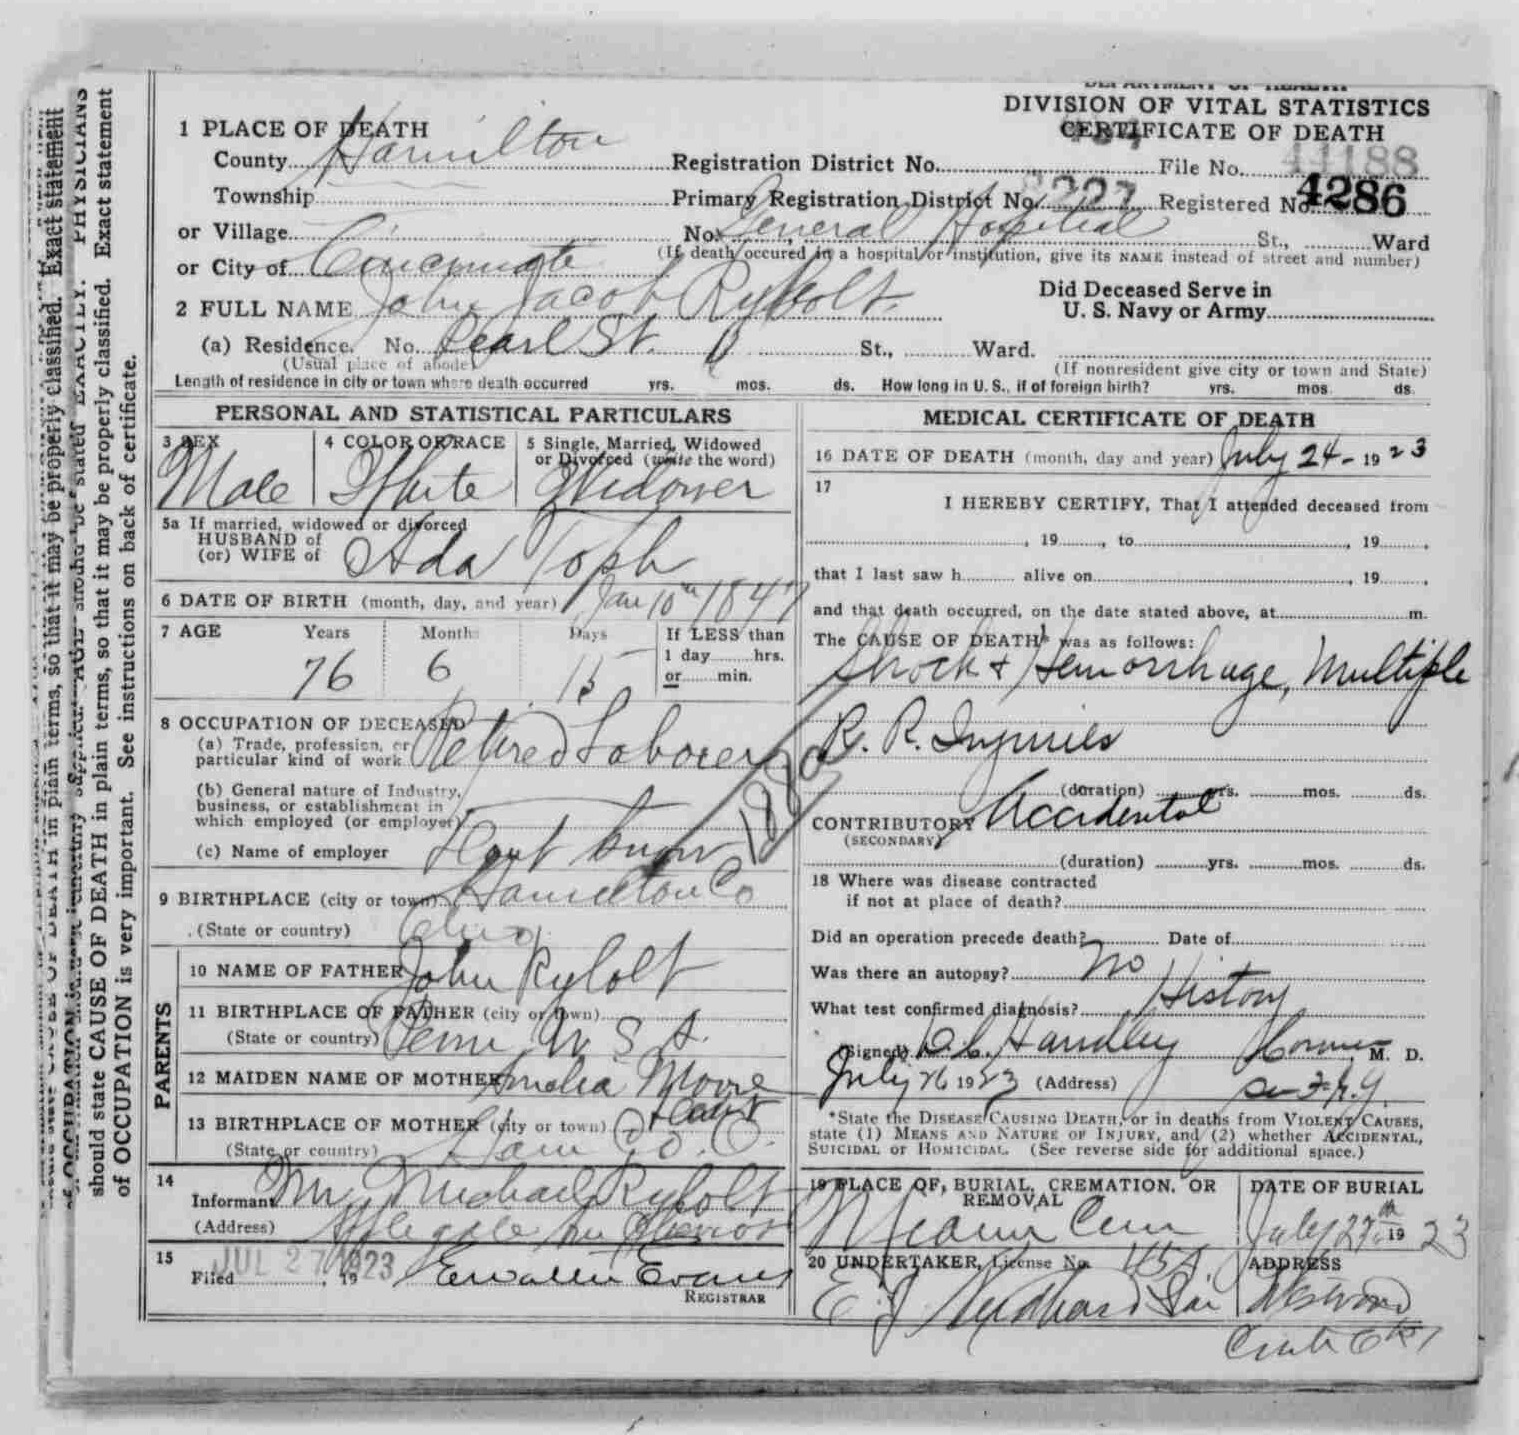 DIVISION OF VITAL STATISTICS
CERTIFICATE OF DEATH
1 PLACE OF DEATH
County Hamilton
Registration District No. File No. 41188
Township Primary Registration District No. 8227 Registered No. 4286
or Village No. General Hospital St., Ward
(If death occured in a hospital or institution, give its NAME instead of street and number)
or City of Cincinnati
2 FULL NAME John Jacob Rybolt
Did Deceased Serve in
U. S. Navy or Army
(a) Residence. No. Pearl St. St., Ward.
(Usual place of abode) (If nonresident give city or town and State)
Length of residence in city or town where death occurred yrs. mos. ds. How long in U. S., if of foreign birth? yrs. mos. ds.
PERSONAL AND STATISTICAL PARTICULARS
3 SEX
Male
4 COLOR OR RACE
White
5 Single, Married, Widowed
or Divorced (write the word)
Widower
5a If married, widowed or divorced
HUSBAND of
(or) WIFE of Ada Toph
6 DATE OF BIRTH (month, day, and year) Jan 10th 1847
7 AGE Years Months Days If LESS than
1 day hrs.
or min.
76 6 15
8 OCCUPATION OF DECEASED
(a) Trade, profession, or
particular kind of work Retired Laborer
(b) General nature of Industry,
business, or establishment in
which employed (or employer)
(c) Name of employer Dont know
188a
9 BIRTHPLACE (city or town) Hamilton Co
(State or country) Ohio
PARENTS
10 NAME OF FATHER John Rybolt
11 BIRTHPLACE OF FATHER (city or town)
(State or country) Penn U. S. A.
12 MAIDEN NAME OF MOTHER Amelia Moore
13 BIRTHPLACE OF MOTHER (city or town)
(State or country) Ham Co. O.
14
Informant Mr Michael Rybolt
(Address)
15
Filed JUL 27 1923, 19 Evans
REGISTRAR
MEDICAL CERTIFICATE OF DEATH
16 DATE OF DEATH (month, day and year) July 24 - 19 23
17
I HEREBY CERTIFY, That I attended deceased from
, 19 , to , 19 ,
that I last saw h alive on , 19 ,
and that death occurred, on the date stated above, at m.
The CAUSE OF DEATH* was as follows:
Shock & Hemorrhage, Multiple
R. R. Injuries
(duration) yrs. mos. ds.
CONTRIBUTORY Accidental
(SECONDARY)
(duration) yrs. mos. ds.
18 Where was disease contracted
if not at place of death?
Did an operation precede death? Date of
Was there an autopsy? No
What test confirmed diagnosis? History
(Signed) D. C. Handley Coroner M. D.
July 26 1923 (Address)
*State the DISEASE CAUSING DEATH, or in deaths from VIOLENT CAUSES,
state (1) MEANS AND NATURE OF INJURY, and (2) whether ACCIDENTAL,
SUICIDAL or HOMICIDAL. (See reverse side for additional space.)
19 PLACE OF, BURIAL, CREMATION, OR
REMOVAL
Cem
DATE OF BURIAL
July 27th 19 23
20 UNDERTAKER, License No.
E. J.
ADDRESS
Westwood
should state CAUSE OF DEATH in plain terms, so that it may be properly classified. Exact statement
of OCCUPATION is very important. See instructions on back of certificate.